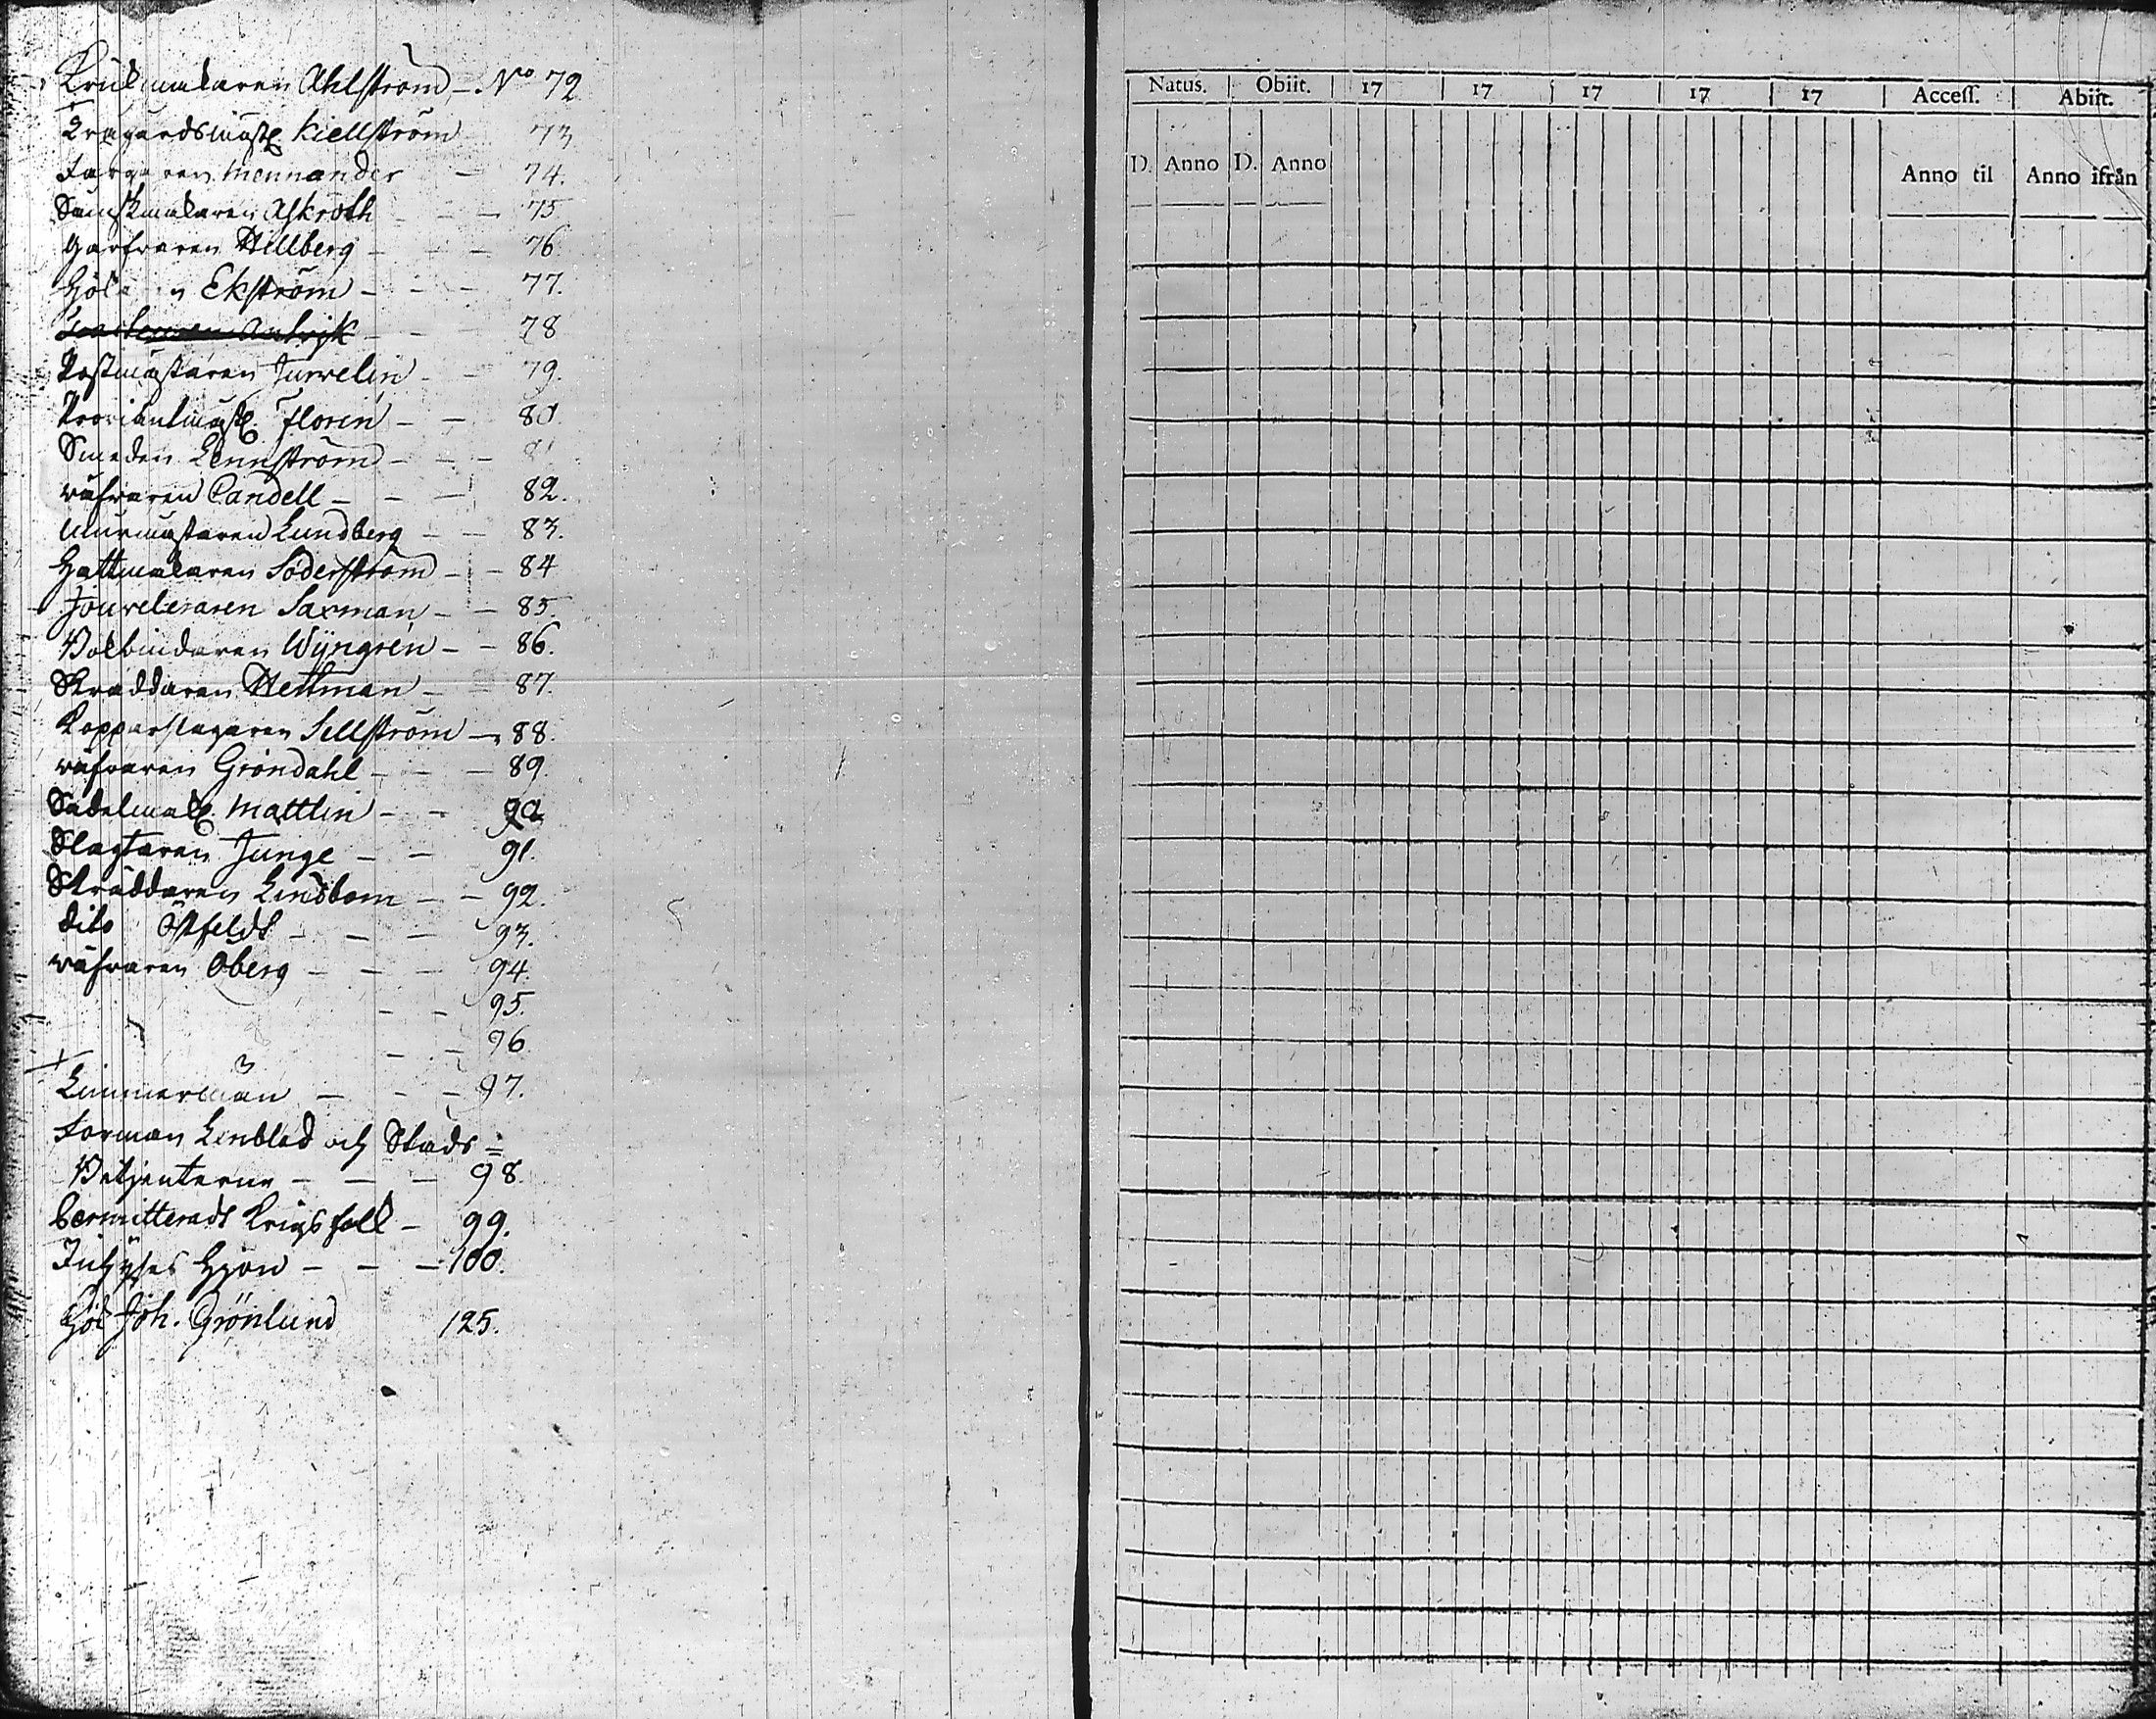 Krukmakaren Ahlström - No 72
Trägårdsmäst. Kiellström 73
Färgaren Mennander - 74.
Sämskmakaren Askroth - - 75
Garfvaren Hellberg - - 76
Ekström - - - 77.
- - 78
Postmästaren Juvvelin - - 79.
Proviantmäst. Floren - - 80.
Smeden Lennström - - - 81
räfvaren Candell - - - 82.
Murmästaren Lundberg - - 83.
Hattmakaren Söderström - - 84
Jouveleraren Saxman - - 85.
Bokbindaren Wijngren - - 86.
Skräddaren Hellman - 87.
Kopparslagaren Sellström - 88.
räfvaren Gröndahl - - - 89.
Sadelmak. Mattlin - - 90
Slagtaren Junge - - 91.
Skräddaren Lindbom - - 92.
dito Östfeldt - - - 93.
räfvaren Öberg - - - 94.
- - 95.
- - 96.
Limmerman - - - 97.
Forman Lenblad och Stads=
Betjenterne - - - 98.
Permitteradt Krigsfolk - 99.
Inhyses Hjon - - - 100.
Joh. Grönlund 125.
Natus. Obiit. 17 17 17 17 17 Access. Abiit.
D. Anno D. Anno Anno til Anno ifrån